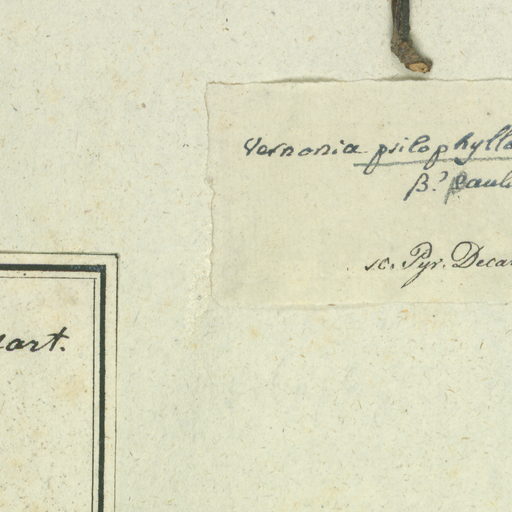 Vernonia psilophylla
β.?
sc. Pyr. Deca
art.